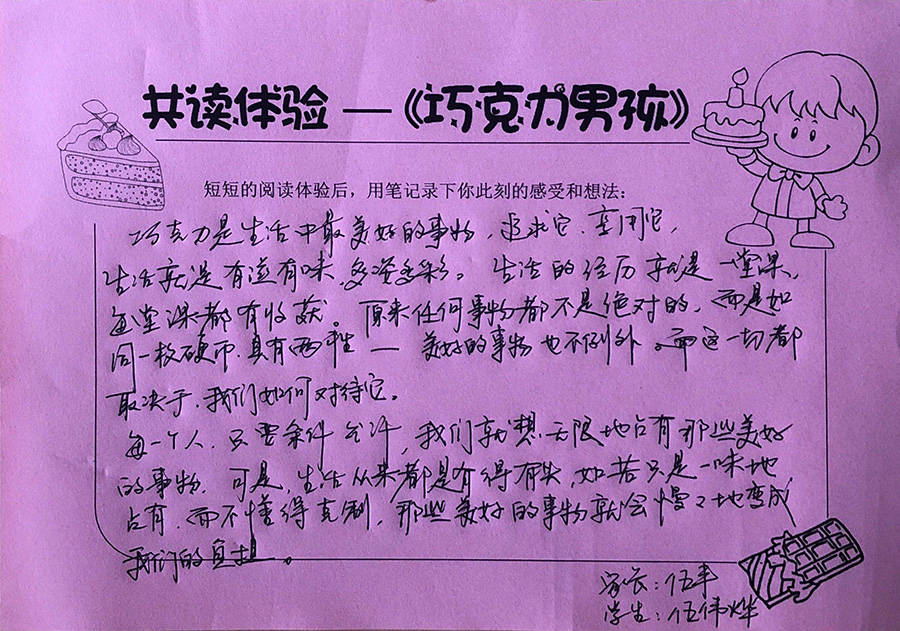 共读体验 —《巧克力男孩》
短短的阅读体验后，用笔记录下你此刻的感受和想法：
巧克力是生活中最美好的事物，追求它，享用它，
生活就是有滋有味，多姿多彩。生活的经历就是一堂课，
每堂课都有收获。原来任何事物都不是绝对的，而是如
同一枚硬币，具有两面性 — 美好的事物也不例外。而这一切都
取决于，我们如何对待它。
每一个人，只要条件允许，我们就想无限地占有那些美好
的事物，可是，生活从来都是有得有失，如若只是一味地
占有，而不懂得克制，那些美好的事物就会慢慢地变成
我们的负担。
家长：伍丰
学生：伍伟烨